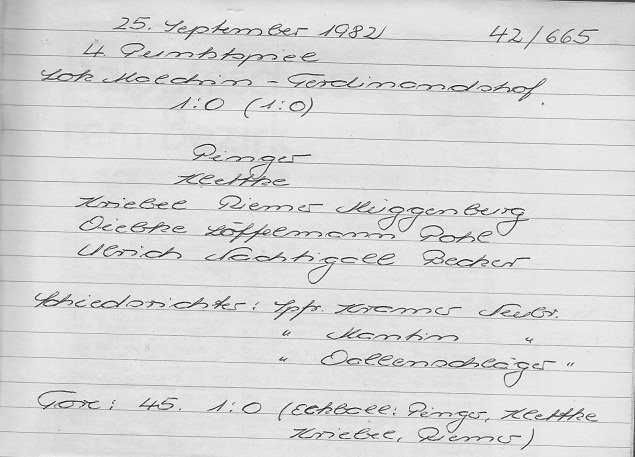 25. September 1982 42/665
4. Punktspiel
Lok Malchin - Ferdinandshof.
1:0 (1:0)
Pinger
Klettke
Kriebel Riemer Müggenburg
Diebke Löffelmann Pohl
Ulrich Nachtigall Becker
Schiedsrichter: Spfr. Kramer Neubr.
" Mantin "
" Dallenschläger "
Tore: 45. 1:0 (Eckball: Pinger, Klettke
Kriebel, Riemer)